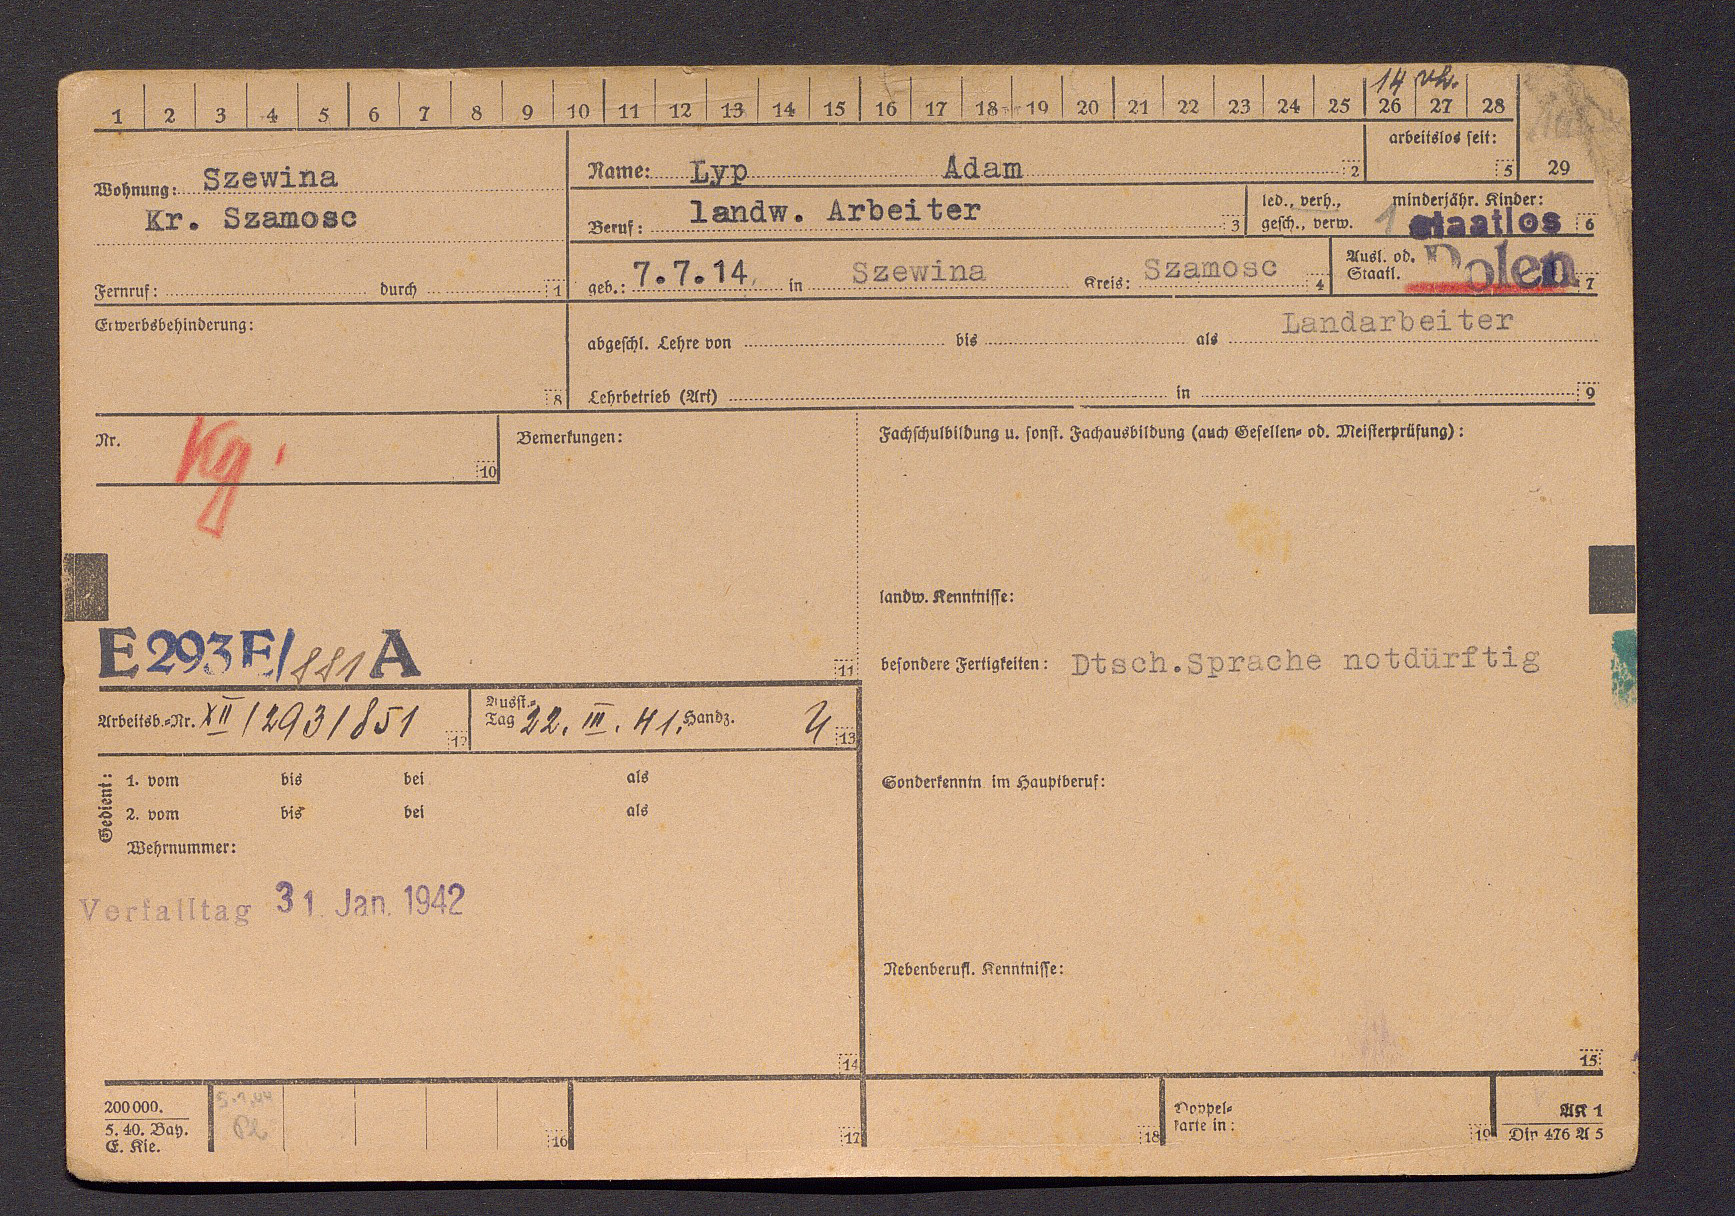 14 vh.
1 2 3 4 5 6 7 8 9 10 11 12 13 14 15 16 17 18 19 20 21 22 23 24 25 26 27 28
arbeitslos seit: 5 29
Wohnung: Szewina
Kr. Szamosc
Name: Lyp Adam 2
Beruf: landw. Arbeiter 3
led., verh., gesch., verw. 1
minderjähr. Kinder: 6
staatlos
Fernruf: durch 1
geb.: 7.7.14. in Szewina Kreis: Szamosc 4
Ausl. od. Staatl. Polen 7
Erwerbsbehinderung: 8
Landarbeiter
abgeschl. Lehre von bis als
Lehrbetrieb (Art) in 9
Nr. Kg. 10
Bemerkungen:
Fachschulbildung u. sonst. Fachausbildung (auch Gesellen- od. Meisterprüfung):
landw. Kenntnisse:
E 293 E/881 A 11
besondere Fertigkeiten: Dtsch.Sprache notdürftig
Arbeitsb.-Nr. XII/293/851 12
Ausst.-Tag 22. III. 41. Handz. 13
Gedient:
1. vom bis bei als
2. vom bis bei als
Wehrnummer:
Sonderkenntn im Hauptberuf:
Verfalltag 31. Jan. 1942
Nebenberufl. Kenntnisse:
14 15
200000.
5. 40. Bay.
E. Kie.
16 17 18
Doppel-
karte in: 19
AK 1
Din 476 A 5